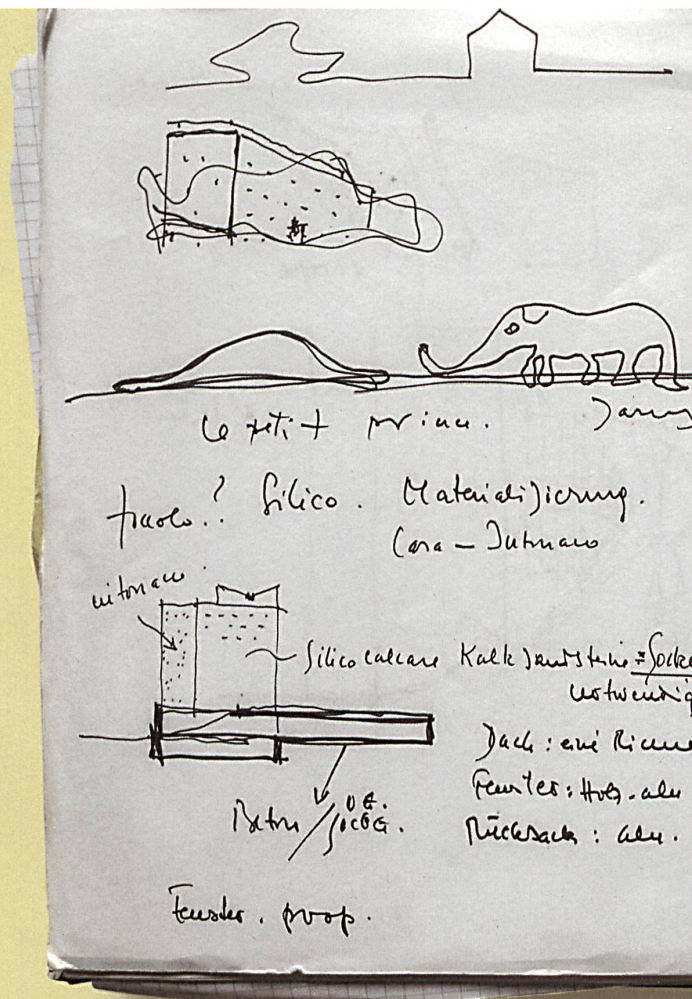 Le petit prince.
? Silico. Materialisierung.
Casa – Intonaco
intonaco
Silico calcare Kalksandsteine = Socke
notwendig
Dach: eine Rinne
Fenster: Holz-alu
Beton / OG.
Rucksack: alu.
Fenster. prop.